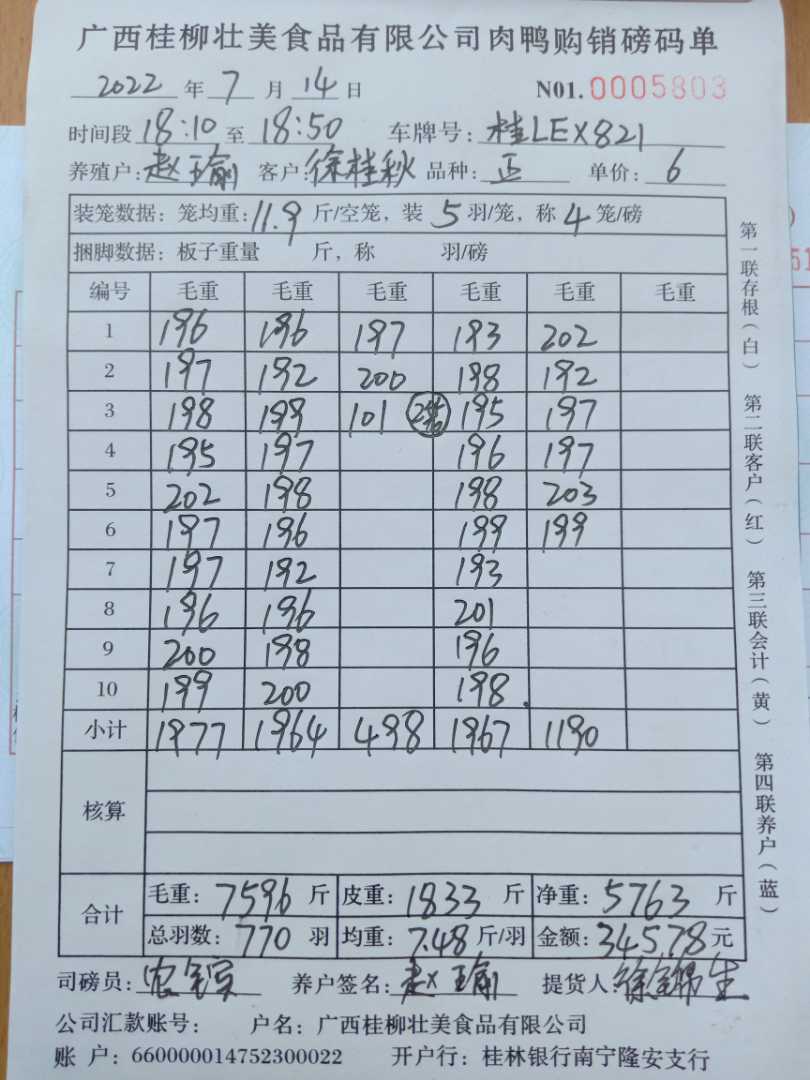 广西桂柳壮美食品有限公司肉鸭购销磅码单
2022 年 7 月 14 日 N01. 0005803
时间段 18:10 至 18:50 车牌号: 桂LEX821
养殖户: 赵玉瑜 客户: 徐桂秋 品种: 正 单价: 6
装笼数据: 笼均重: 11.9 斤/空笼, 装 5 羽/笼, 称 4 笼/磅
捆脚数据: 板子重量 斤, 称 羽/磅
编号 毛重 毛重 毛重 毛重 毛重 毛重
1 196 196 197 193 202
2 197 192 200 198 192
3 198 199 101 195 197
4 195 197 196 197
5 202 198 198 203
6 197 196 199 199
7 197 192 193
8 196 196 201
9 200 198 196
10 199 200 198
小计 1977 1964 498 1967 1190
核算
合计
毛重: 7596 斤 皮重: 1833 斤 净重: 5763 斤
总羽数: 770 羽 均重: 7.48 斤/羽 金额: 34578 元
司磅员: 养户签名: 赵玉瑜 提货人:
公司汇款账号: 户名: 广西桂柳壮美食品有限公司
账 户: 660000014752300022 开户行: 桂林银行南宁隆安支行
第一联存根(白)
第二联客户(红)
第三联会计(黄)
第四联养户(蓝)